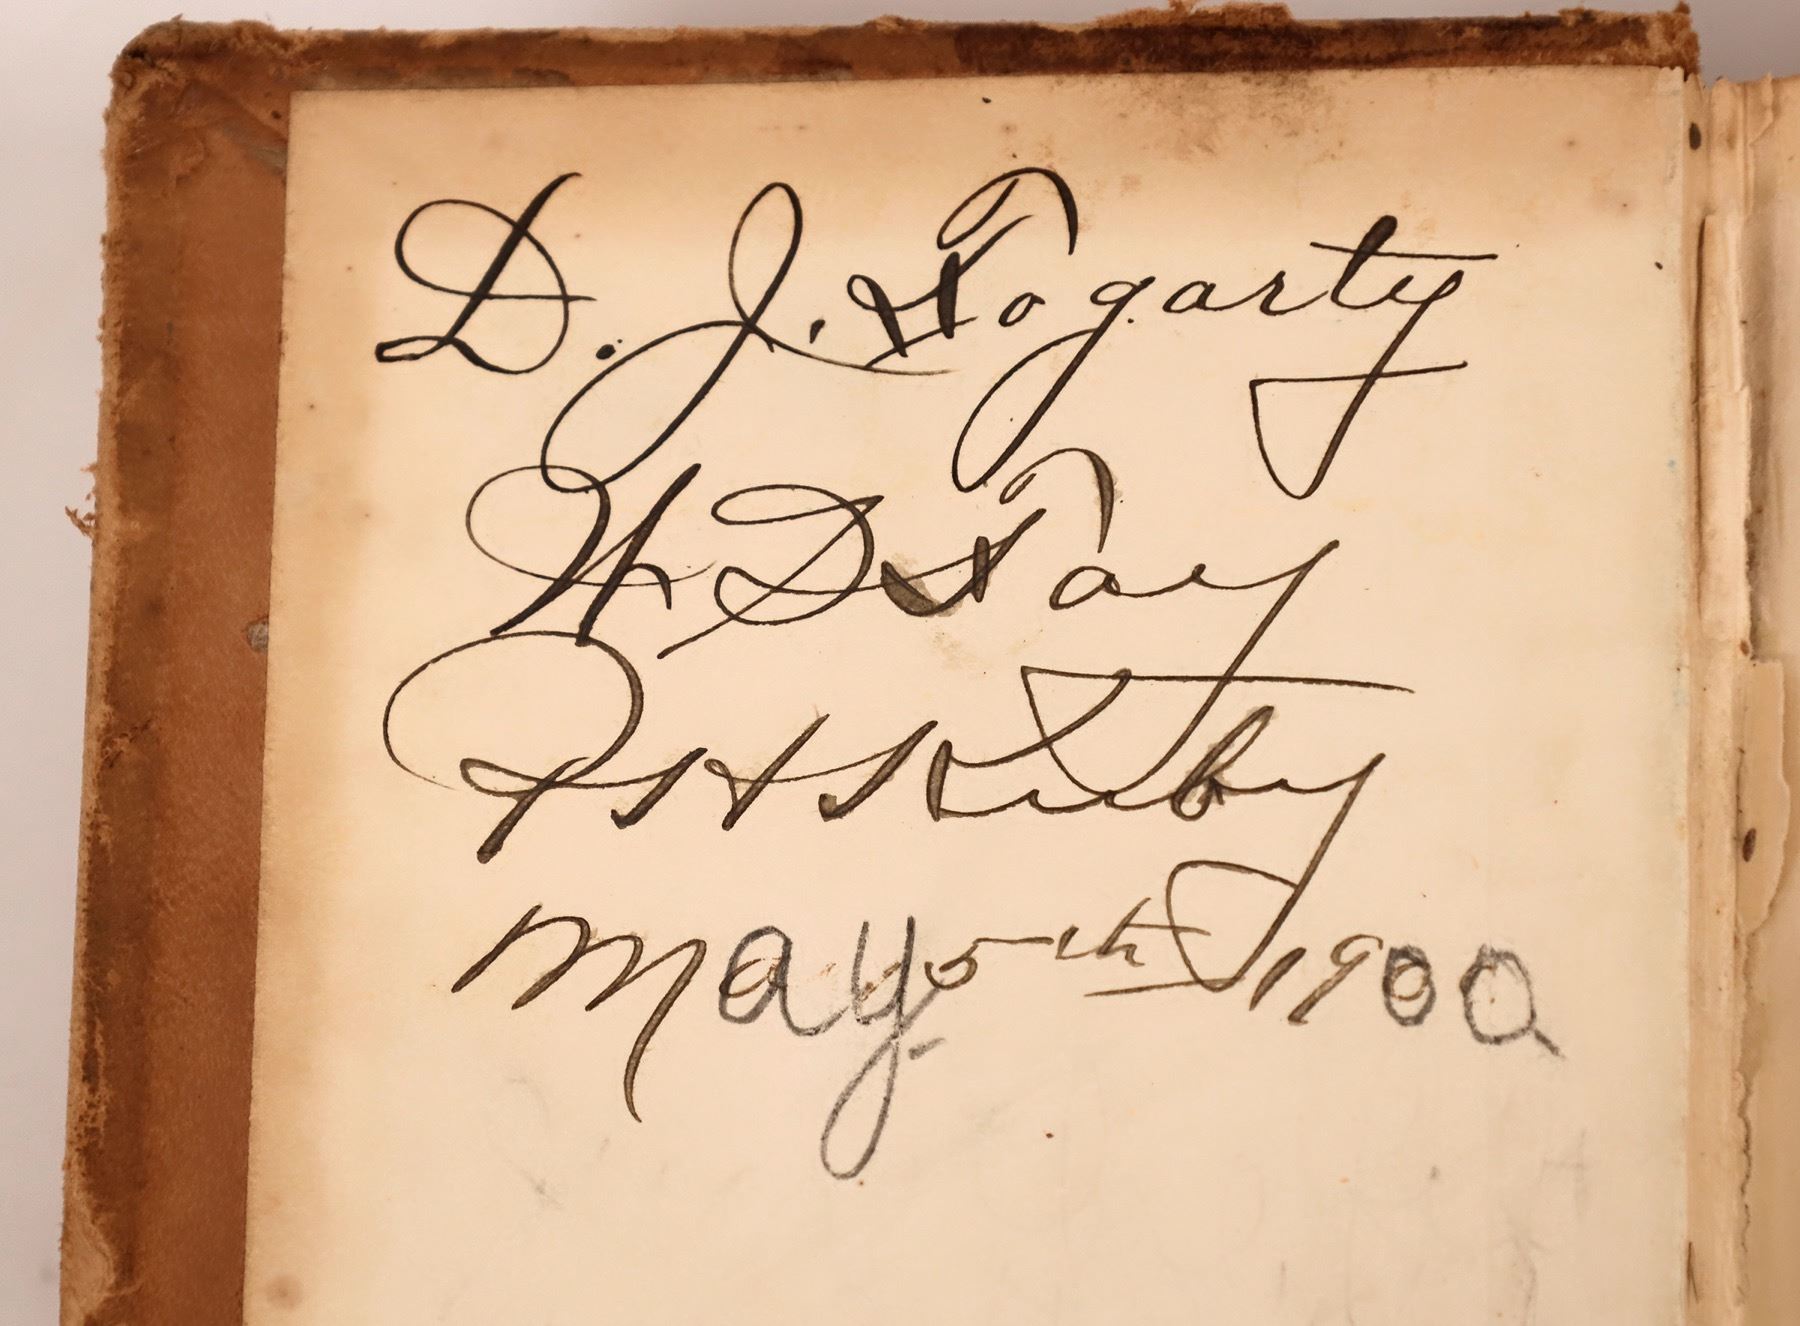 D. J. Fogarty
W D Fay
P H Kirby
May 5th 1900